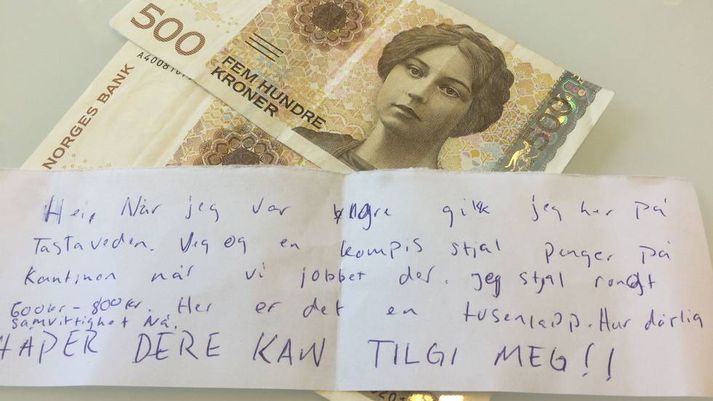 500
A40081
FEM HUNDRE
KRONER
NORGES BANK
500
Hei, Når jeg var yngre gikk jeg her på
Tastaveden. Jeg og en kompis stjal penger på
Kantinen når vi jobbet der. Jeg stjal rundt
600kr - 800kr. Her er det en tusenlapp. Har dårlig
samvittighet nå.
HÅPER DERE KAN TILGI MEG!!